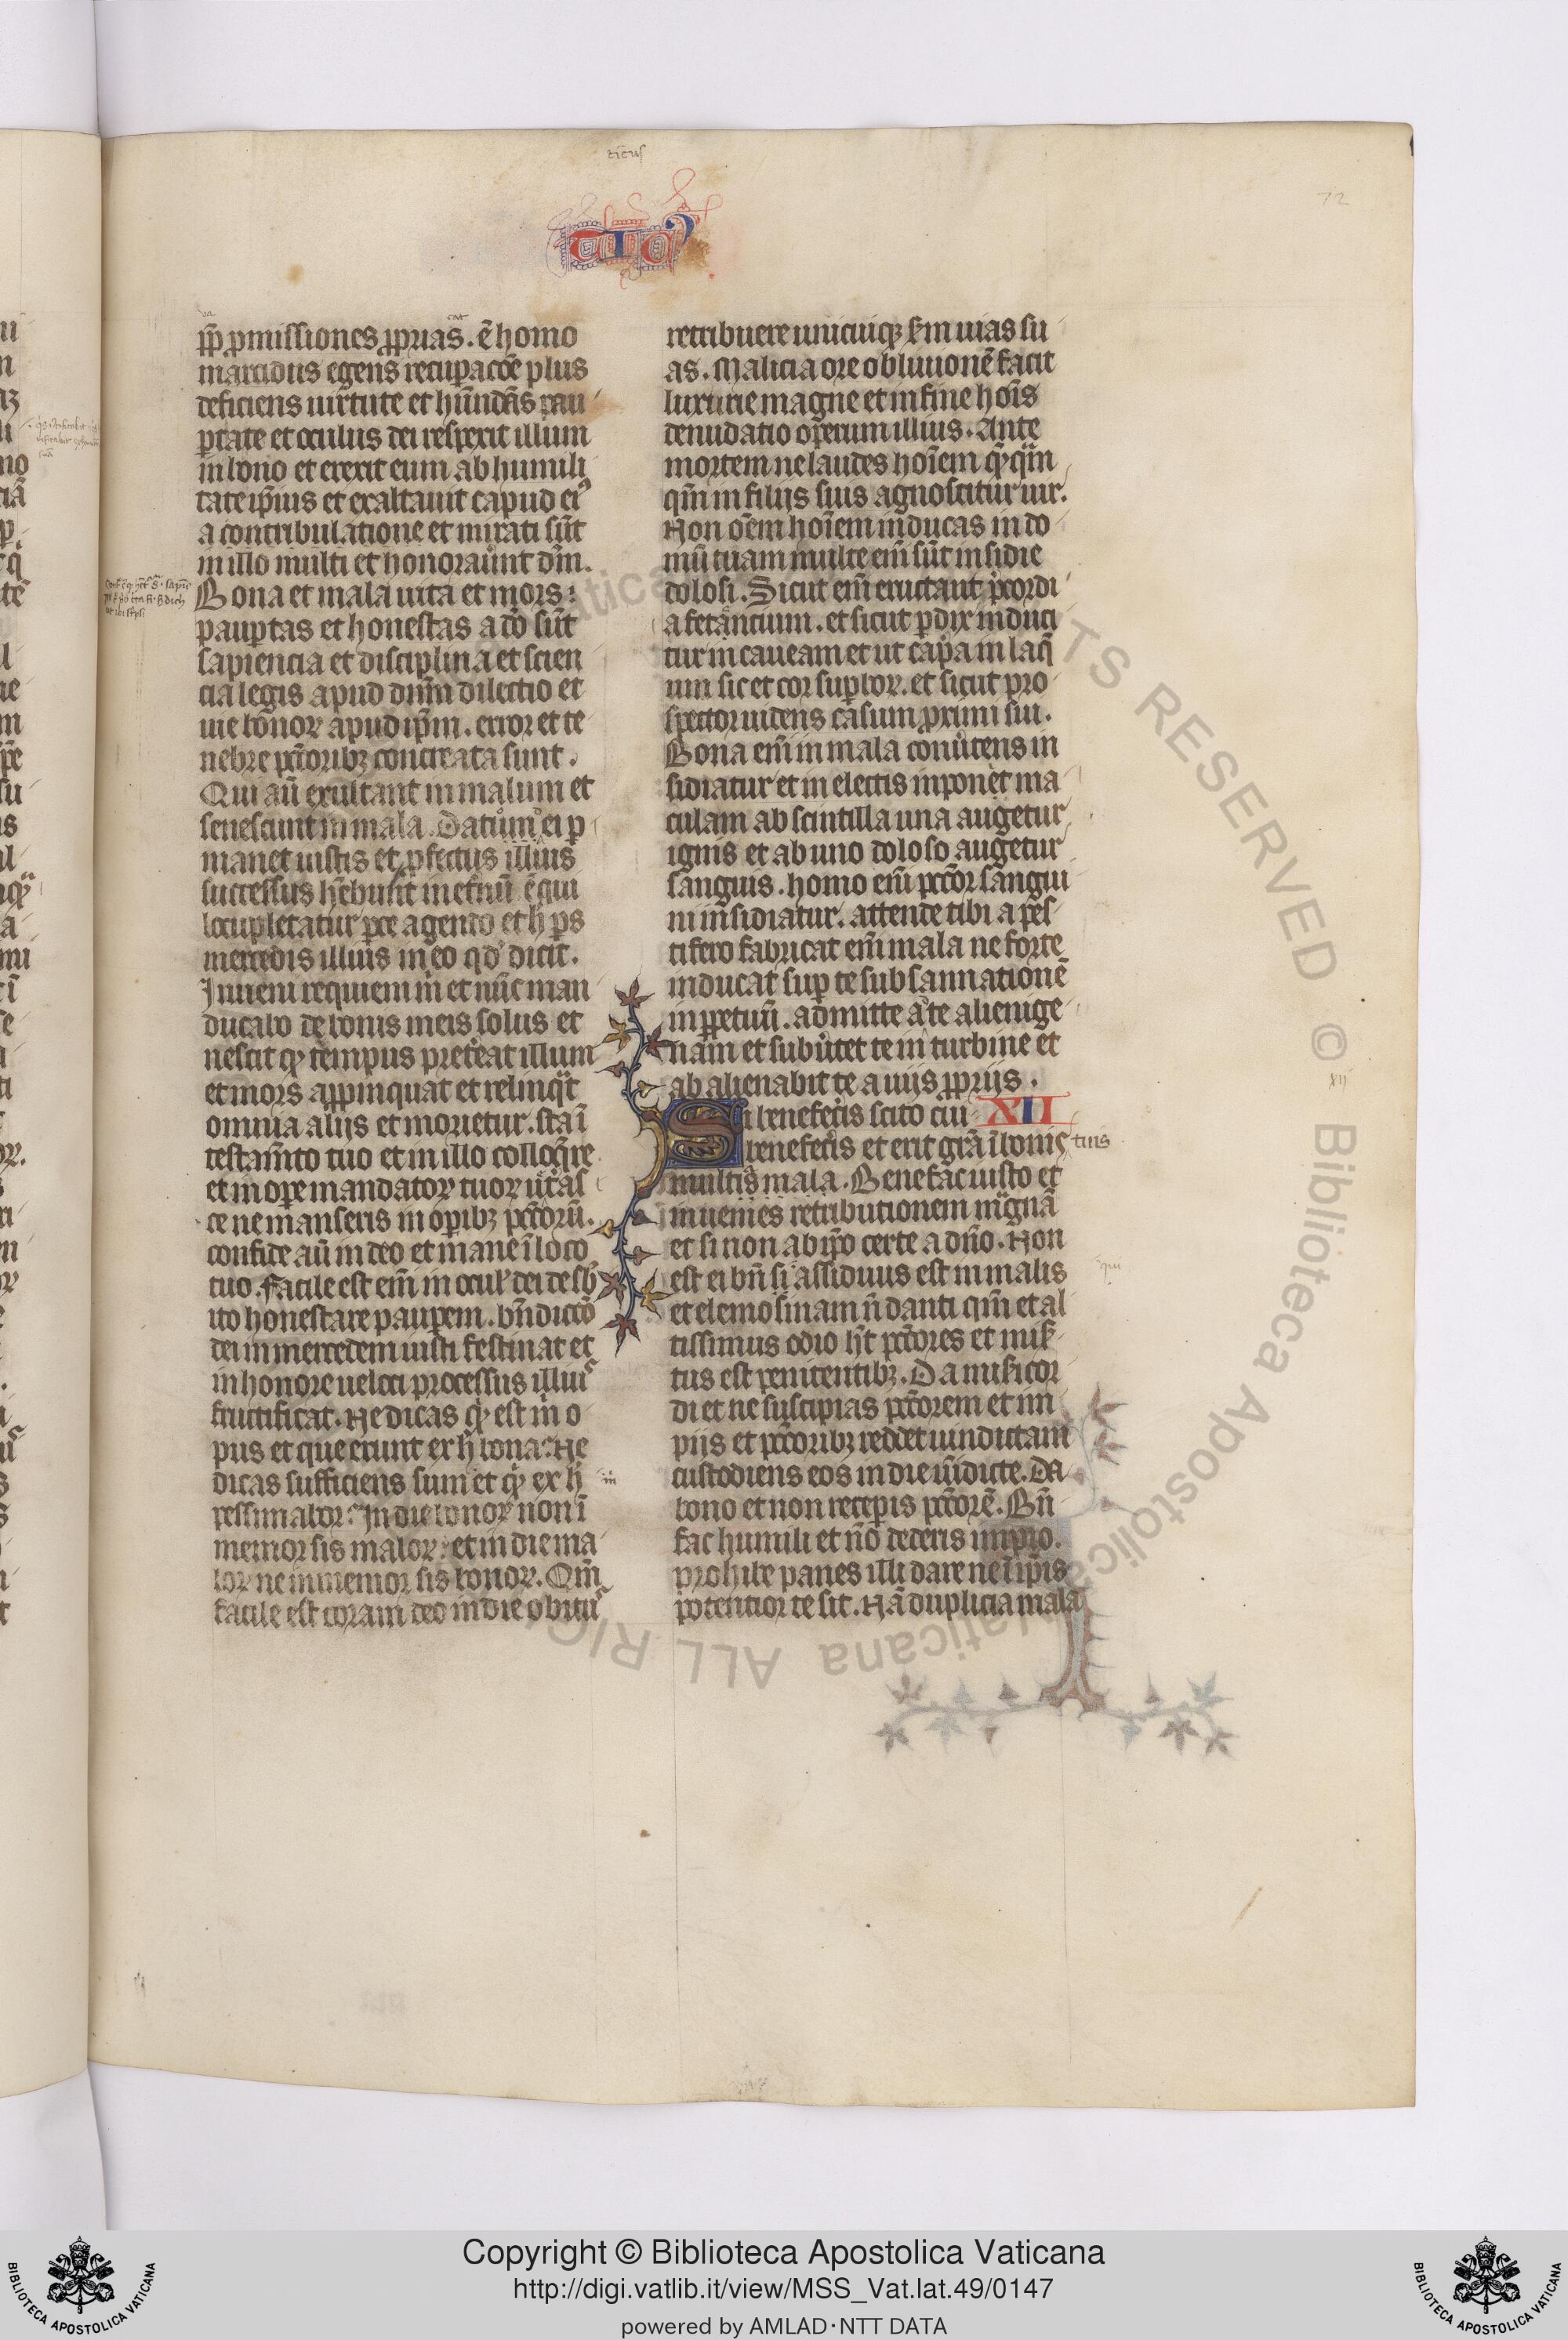 ticus
72
TIC9
ꝓp̄ ꝓmissiones ꝓpͥuas. ē homo
marcidus egens recuꝑacōe plus
deficiens uirtute et hūndās pau
ꝑtate et oculus dei respexit illum
in bono et erexit eum ab humili
tate ip̄ius et exaltauit capud ei9
a contribulatione et mirati sūt
in illo multi et honorauͤunt dm̄.
Bona et mala uita et mors:
pauꝑtas et honestas a dō sūt
sapiencia et disciplina et scien
cia legis apud dnm̄ dilectio et
uie bonoꝝ apud ip̄m. error et te
nebre pc̄toribꝫ concreata sunt.
Qui aū exultant in malum et
senescunt in mala. Datum ͦei ꝑ
manet iustis et ꝓfectus illius
successus hēbunt in et̄nū ē qui
locupletatur ꝑce agendo et h̄ ꝑs
mercedis illius in eo qd̓ dicit.
Inueni requiem m̍ et nūc man
ducabo de bonis meis solus et
nescit ꝙ tempus pretͤeat illum
et mors apꝓpinquat et relinqͣt
omnia alijs et morietur. sta ī
testam̄to tuo et in illo colloq̄re
et in oꝑe mandatoꝝ tuoꝝ uetͤas
ce ne manseris in oꝑibꝫ pc̄torū.
confide aū in deo et mane ī loco
tuo. facile est em̄ in ocul̓ dei de sb̓
ito honestare pauꝑem. bn̄dicc̄o
dei in mercedem iusti festinat et
in honore ueloci processus illiuˢ
fructificat. Ne dicas ꝙ est m̍ o
pus et que erunt ex h̄ bona: Ne
dicas sufficiens sum et ꝙ ex h̄
pessimabor: In die bonoꝝ non ī
memor sis maloꝝ: et in die ma
loꝝ ne inmemor sis bonoꝝ. Qm̄
facile est coram deo in die obituˢ
retribuere unicuiqꝫ ẜm uias su
as. Malicia ore obliuionē facit
luxurie magne et in fine hoīs
denudatio operum illius. Ante
mortem ne laudes hoīem qͥqͣm
qm̄ in filijs suis agnoscitur uir.
Non oēm hoīem inducas in do
mū tuam multe em̄ sūt insidie
dolosi. Sicut em̄ eructant p̄cordi
a fetancium. et sicut ꝑdix induci
tur in caueam et ut capͣa in laq̄
um sic et cor suꝑboꝝ. et sicut pro
spector uidens casum ꝓximi sui.
Bona em̄ in mala conuͤtens in
sidiatur et in electis inponet ma
culam ab scintilla una augetur
ignis et ab uno doloso augetur
sanguis. homo em̄ pc̄cor sangui
ni insidiatur. attende tibi a pes
tifero fabricat em̄ mala ne forte
inducat suꝑ te subsannationē
in ꝑpetuū. admitte aͩ te alienige
nam et subuͤtet te in turbine et
ab alienabit te a uijs ꝓprijs.
Si benefecͤis scito cui XII
benefecͤis et erit grā ī bonis tuis
multis mala. Benefac iusto et
inuenies retributionem mͣgnā
et si non ab ip̄o certe a dn̄o. Non
est ei bn̄ si assiduus est in malis
et elemosinam n̄ danti qm̄ et al
tissimus odio h̄t pc̄tores et mis̄
tus est penitentibꝫ. Da mis̄icor
di et ne suscipias pc̄torem et im
pijs et pc̄toribꝫ reddet uindictam
custodiens eos in die uīdicte. Da
bono et non receꝑis pc̄torē. Bn̄
fac humili et nō dederis impio.
prohibe panes illi dare ne ī ip̄is
potentior te sit. Nā duplicia mala
xij
Copyright © Biblioteca Apostolica Vaticana
http://digi.vatlib.it/view/MSS_Vat.lat.49/0147
powered by AMLAD·NTT DATA
BIBLIOTECA APOSTOLICA VATICANA
BIBLIOTECA APOSTOLICA VATICANA
ALL RIGHTS RESERVED © Biblioteca Apostolica Vaticana